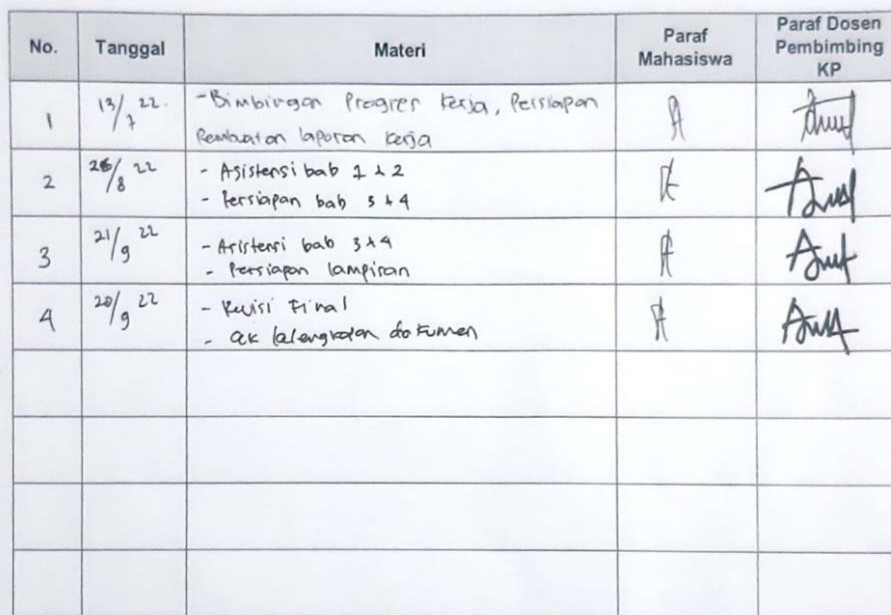 No. Tanggal Materi Paraf Mahasiswa Paraf Dosen Pembimbing KP
1 13/7 22. - Bimbingan Progres kerja, Persiapan
Pembuatan laporan kerja
2 26/8 22 - Asistensi bab 1 & 2
- Persiapan bab 3 & 4
3 21/9 22 - Asistensi bab 3 & 4
- Persiapan lampiran
4 20/9 22 - Revisi Final
- cek dokumen